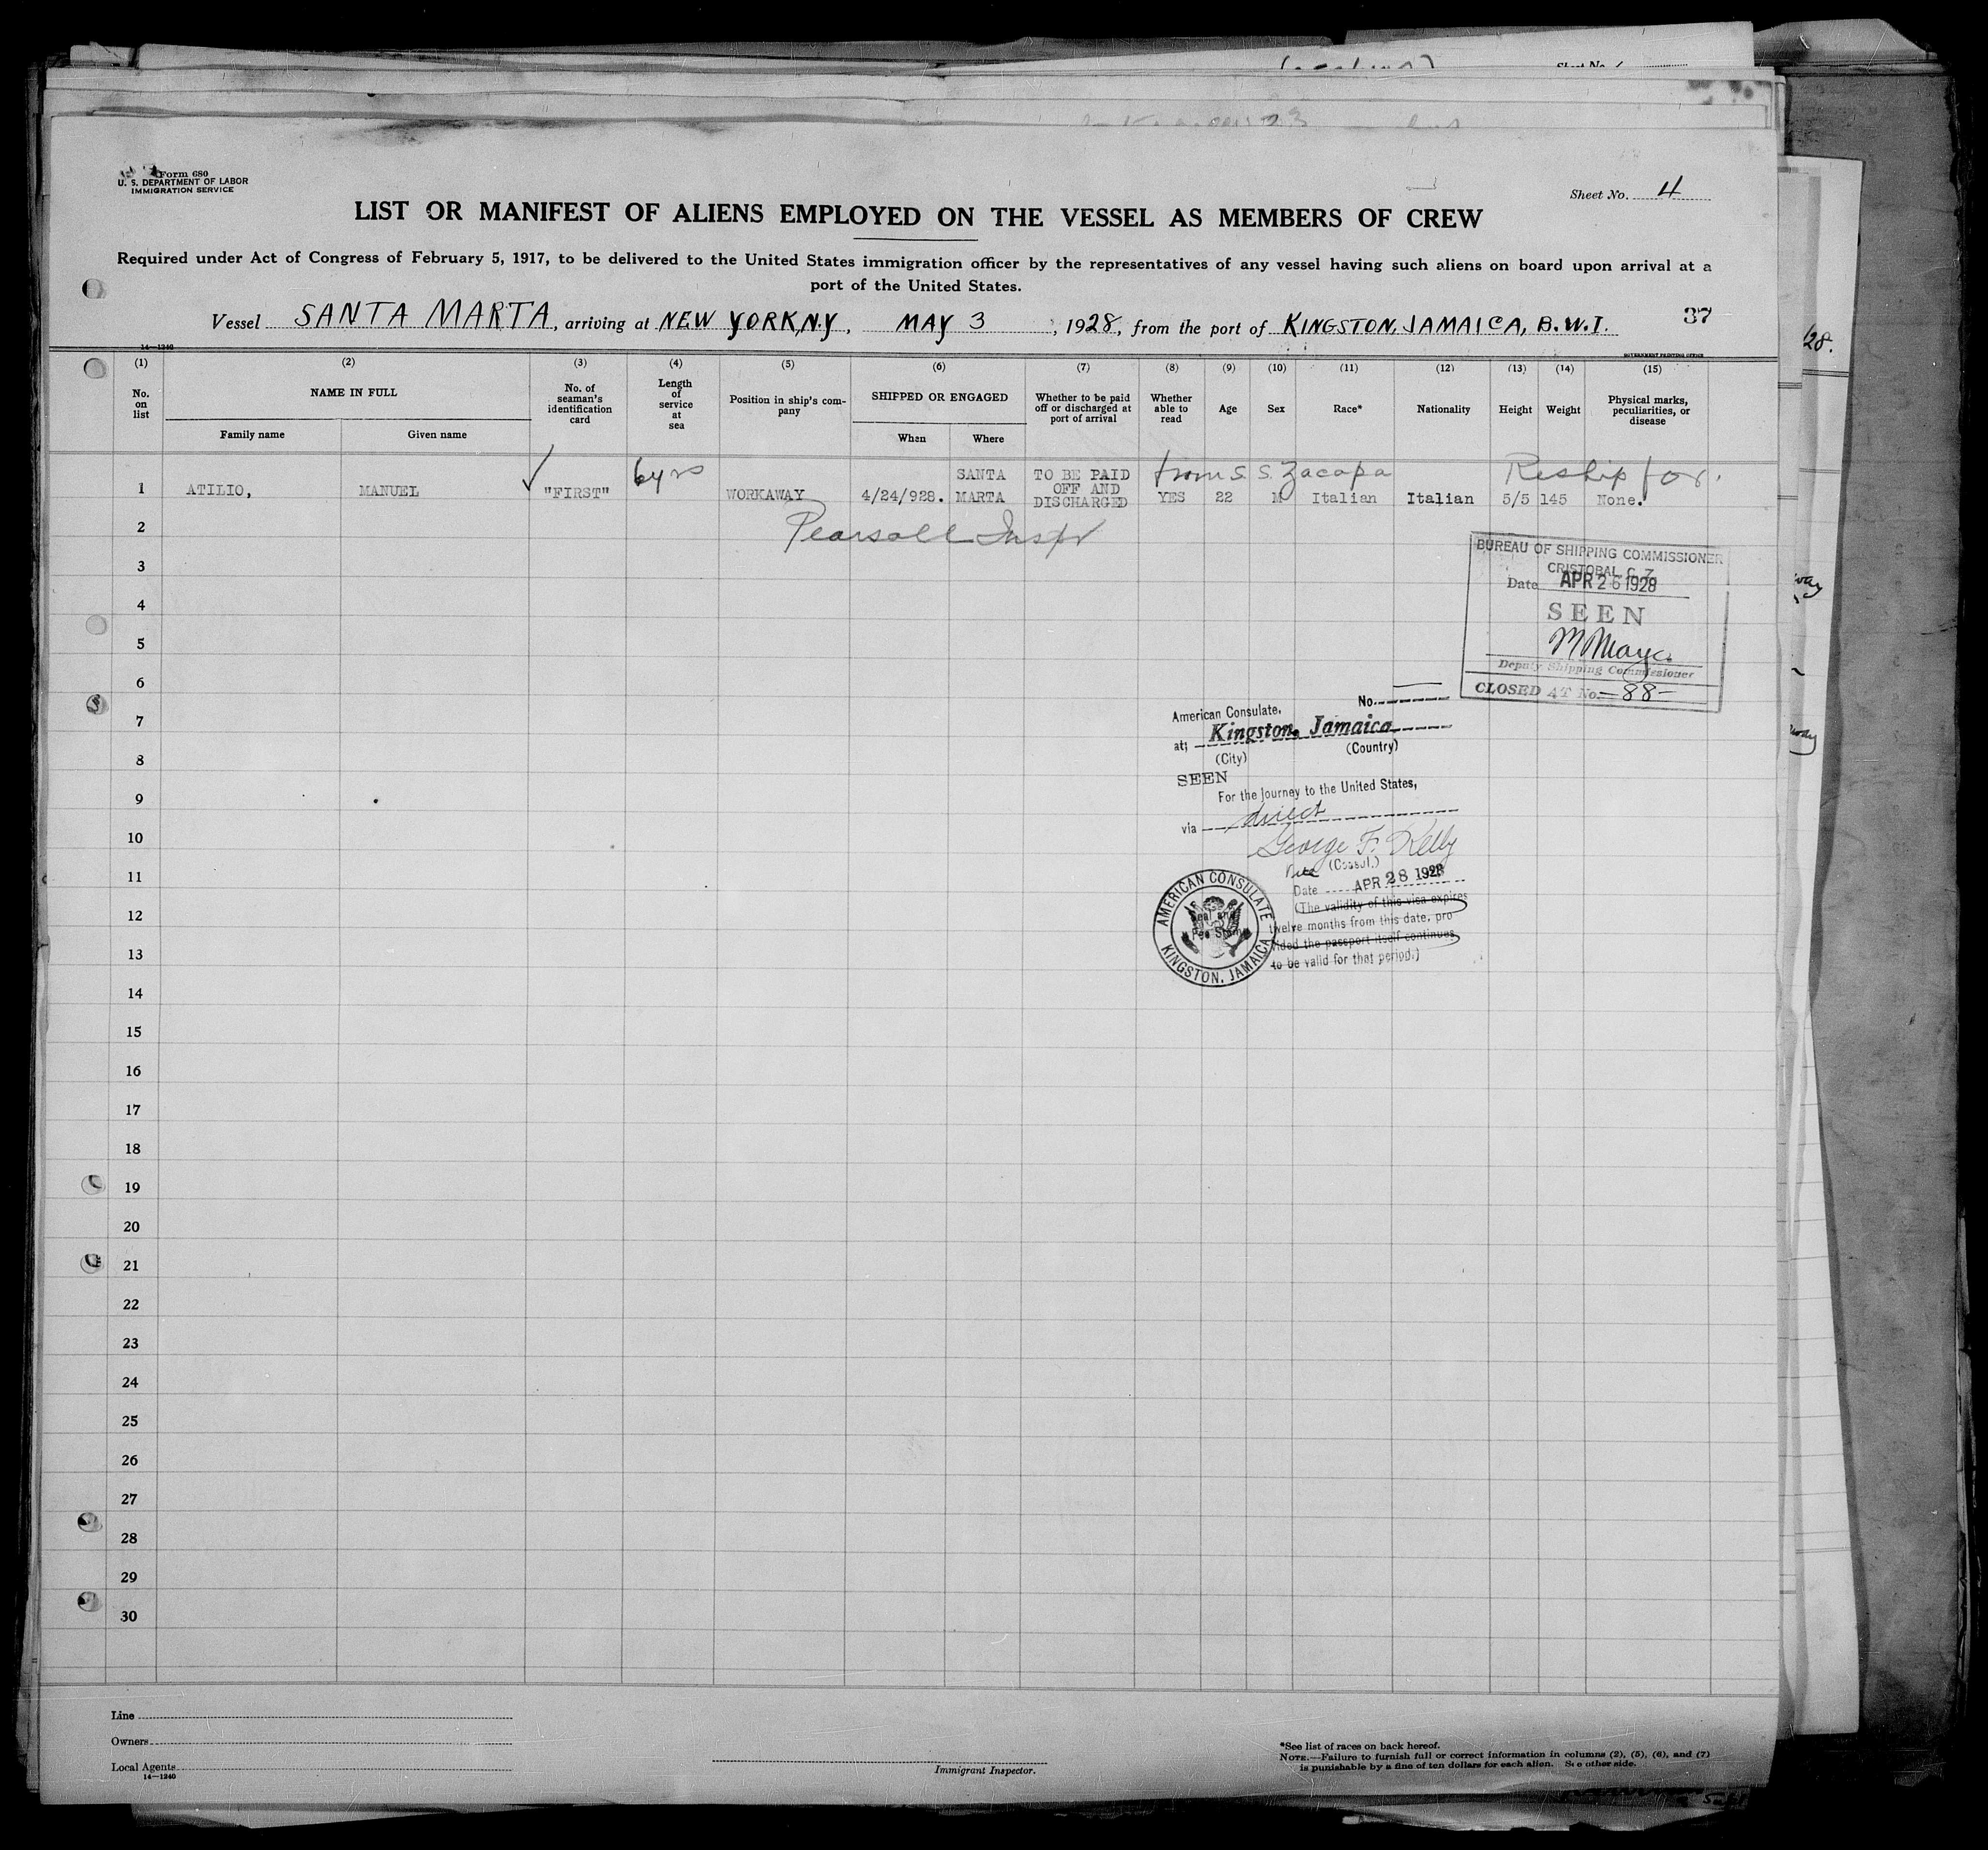 Form 680
U. S. DEPARTMENT OF LABOR
IMMIGRATION SERVICE
Sheet No. 4
LIST OR MANIFEST OF ALIENS EMPLOYED ON THE VESSEL AS MEMBERS OF CREW
Required under Act of Congress of February 5, 1917, to be delivered to the United States immigration officer by the representatives of any vessel having such aliens on board upon arrival at a
port of the United States.
Vessel SANTA MARTA, arriving at NEW YORK, N.Y, MAY 3, 1928, from the port of KINGSTON, JAMAICA, B.W.I.
37
14—1240
GOVERNMENT PRINTING OFFICE
(1) (2) (3) (4) (5) (6) (7) (8) (9) (10) (11) (12) (13) (14) (15)
No. on list
NAME IN FULL
Family name
Given name
No. of seaman's identification card
Length of service at sea
Position in ship's company
SHIPPED OR ENGAGED
When
Where
Whether to be paid off or discharged at port of arrival
Whether able to read
Age
Sex
Race*
Nationality
Height
Weight
Physical marks, peculiarities, or disease
from S. S. Zacapa Reship for.
1 ATILIO, MANUEL "FIRST" 6 yrs WORKAWAY 4/24/928. SANTA MARTA TO BE PAID OFF AND DISCHARGED YES 22 M Italian Italian 5/5 145 None.
Pearsall Inspr
2
3
4
5
6
7
8
9
10
11
12
13
14
15
16
17
18
19
20
21
22
23
24
25
26
27
28
29
30
BUREAU OF SHIPPING COMMISSIONER
CRISTOBAL C. Z.
Date APR 26 1928
SEEN
Deputy Shipping Commissioner
CLOSED AT No. —88—
No.
American Consulate,
at; Kingston, Jamaica
(City) (Country)
SEEN
For the journey to the United States,
via direct
George F. Kelly
(Consul.)
Date APR 28 1928
(The validity of this visa expires
twelve months from this date, pro
vided the passport itself continues
to be valid for that period.)
AMERICAN CONSULATE
KINGSTON, JAMAICA
Seal and
Fee Stamp
Line
Owners
Local Agents
14—1240
Immigrant Inspector.
*See list of races on back hereof.
NOTE.—Failure to furnish full or correct information in columns (2), (5), (6), and (7)
is punishable by a fine of ten dollars for each alien. See other side.